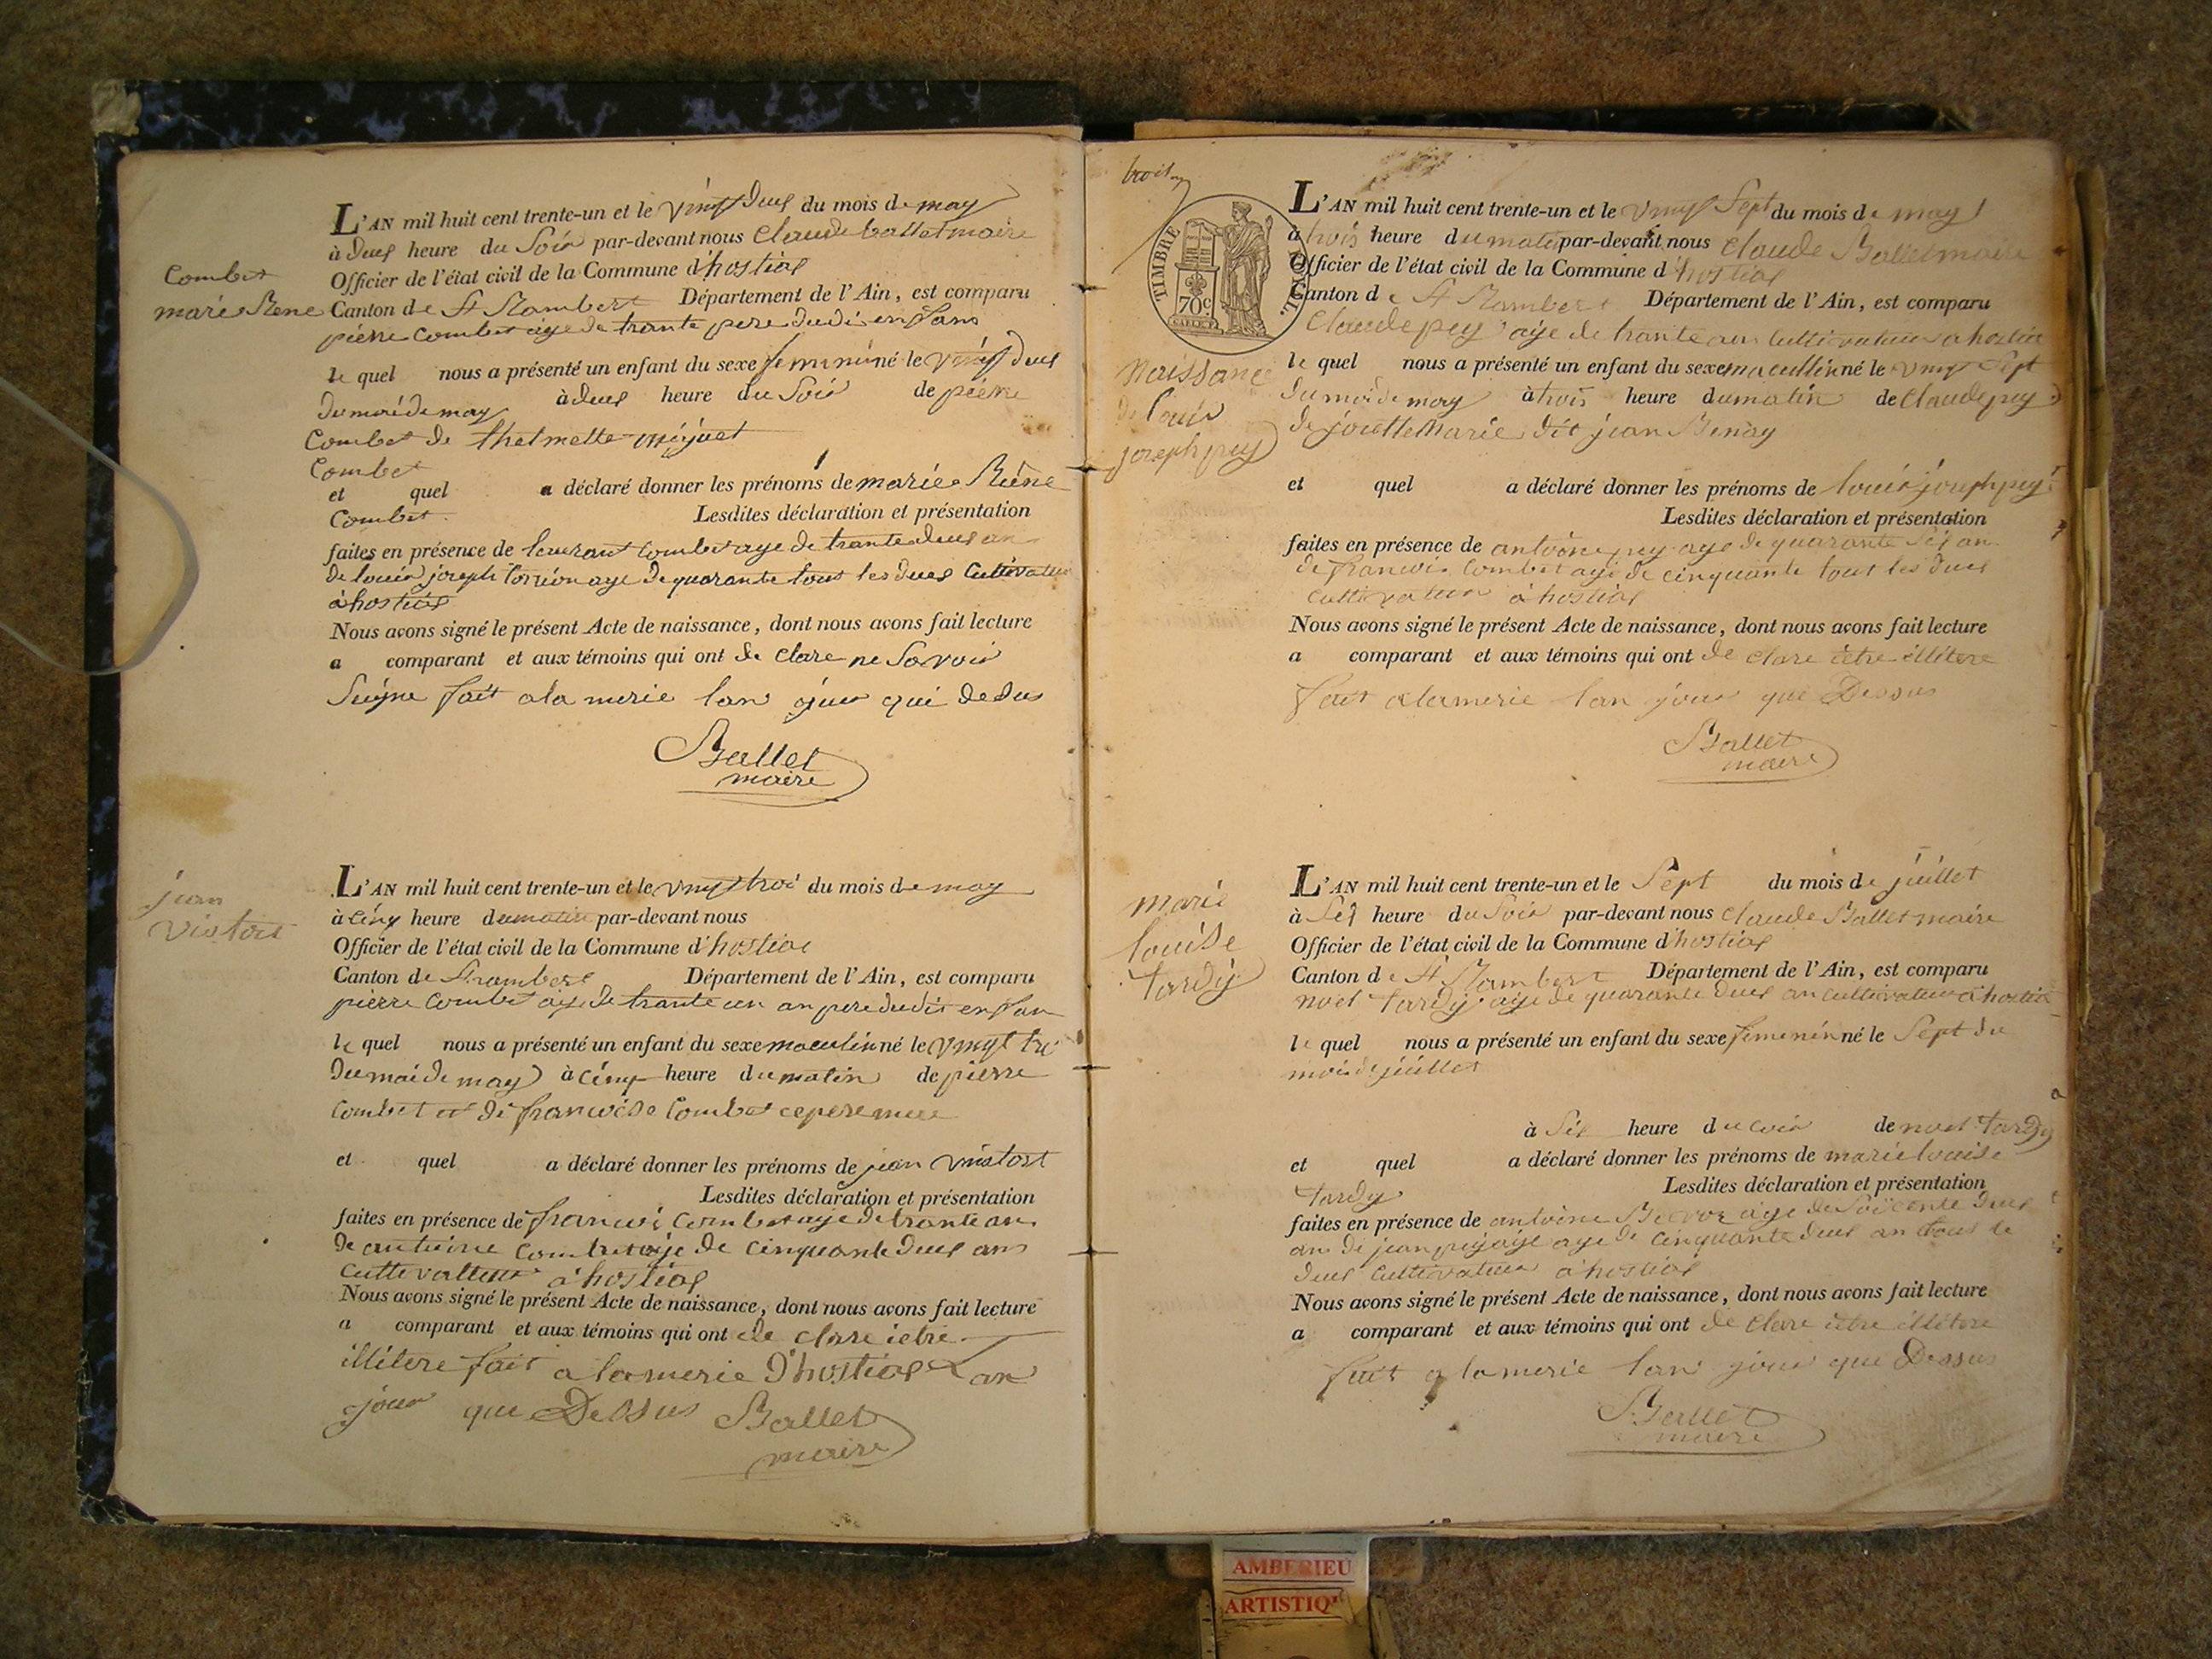 Combet
marie Rene
L'AN mil huit cent trente-un et le vingt deus du mois de may
à deus heure du Soir par-devant nous Claude ballet maire
Officier de l'état civil de la Commune d'hostias
Canton de St Rambert Département de l'Ain, est comparu
pierre Combet age de trante pere dudi enfans
le quel nous a présenté un enfant du sexe feminin né le vingt deus
du moi de may à deus heure du Soir de pierre
Combet de
Combet
et quel a déclaré donner les prénoms de marie Riene
Combet Lesdites déclaration et présentation
faites en présence de laurant Combet age de trante deus an
de louis joseph age de quarante tout les deus Cultivateur
à hostias
Nous avons signé le présent Acte de naissance, dont nous avons fait lecture
a comparant et aux témoins qui ont de clare ne Savoir
Suigne fait a la merie lan jour qui dedus
Ballet
maire
jean
Vistort
L'AN mil huit cent trente-un et le vingt troi du mois de may
à cinq heure du matin par-devant nous
Officier de l'état civil de la Commune d'hostias
Canton de St rambert Département de l'Ain, est comparu
pierre Combet age de trante un an pere dudit enfan
le quel nous a présenté un enfant du sexe maculin né le vingt tri
du moi de may à cinq heure du matin de pierre
Combet et de francoise Combet ce pere mere
et quel a déclaré donner les prénoms de jean vistort
Lesdites déclaration et présentation
faites en présence de francoi Combet age de trante an
de antoine Combet age de cinquante deus ans
Cultivatteur à hostias
Nous avons signé le présent Acte de naissance, dont nous avons fait lecture
a comparant et aux témoins qui ont de clare ietre
illitere fait a la merie D'hostias Lan
jour que Dessus Ballet
maire
trois
TIMBRE ROYAL
70c
Naissance
de louis
joseph pey
L'AN mil huit cent trente-un et le vingt Sept du mois de may
à trois heure du matin par-devant nous Claude Ballet maire
Officier de l'état civil de la Commune d'hostias
Canton de St Rambert Département de l'Ain, est comparu
Claude pey age de trante an Cultivateur a hostias
le quel nous a présenté un enfant du sexe macullin né le vingt Sept
du moi de may à trois heure du matin de Claude pey
de marie dit jean Benay
et quel a déclaré donner les prénoms de louis joseph pey
Lesdites déclaration et présentation
faites en présence de antoine pey age de quarante Sis an
de francois Combet age de cinquante tout les deus
Cultivateur à hostias
Nous avons signé le présent Acte de naissance, dont nous avons fait lecture
a comparant et aux témoins qui ont de clare ietre illitere
fait a la merie lan jour que Dessus
Ballet
maire
marie
louise
tardy
L'AN mil huit cent trente-un et le Sept du mois de juillet
à Sis heure du Soir par-devant nous Claude Ballet maire
Officier de l'état civil de la Commune d'hostias
Canton de St Rambert Département de l'Ain, est comparu
noel tardy age de quarante deus an cultivateur a hostias
le quel nous a présenté un enfant du sexe femenin né le Sept du
mois de juillet
à Sis heure du soir de noel tardy
et quel a déclaré donner les prénoms de marie louise
tardy Lesdites déclaration et présentation
faites en présence de antoine age de Soicente deus
an de jean pey age de cinquante deus an tous le
deus cultivateur à hostias
Nous avons signé le présent Acte de naissance, dont nous avons fait lecture
a comparant et aux témoins qui ont de clare ietre illitere
fait a la merie lan jour que Dessus
Ballet
maire
AMBERIEU
ARTISTIQ